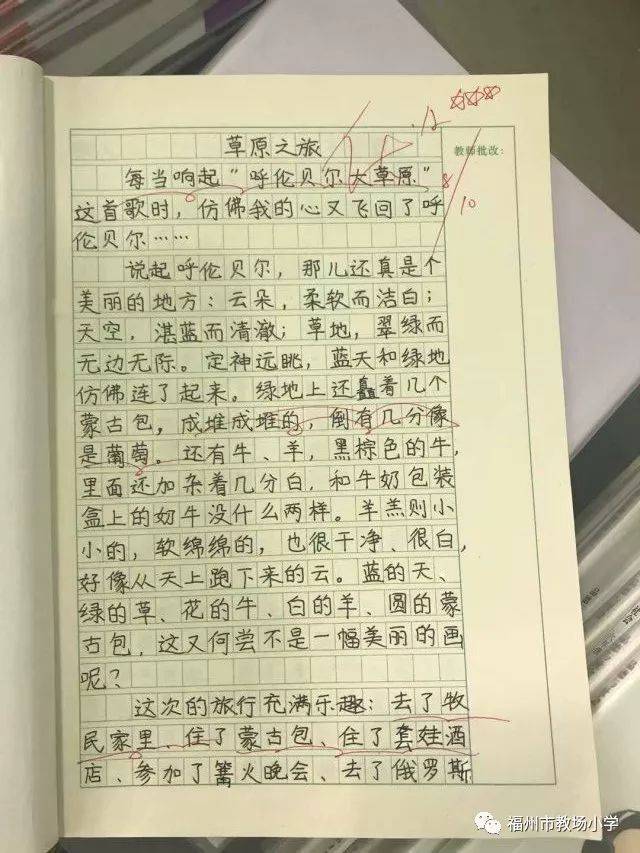 草原之旅
教师批改：
每当响起"呼伦贝尔大草原"
这首歌时，仿佛我的心又飞回了呼
伦贝尔……
8/10
说起呼伦贝尔，那儿还真是个
美丽的地方：云朵，柔软而洁白；
天空，湛蓝而清澈；草地，翠绿而
无边无际。定神远眺，蓝天和绿地
仿佛连了起来。绿地上还矗着几个
蒙古包，成堆成堆的，倒有几分像
是葡萄。还有牛、羊，黑棕色的牛，
里面还加杂着几分白，和牛奶包装
盒上的奶牛没什么两样。羊羔则小
小的，软绵绵的，也很干净、很白，
好像从天上跑下来的云。蓝的天、
绿的草、花的牛、白的羊、圆的蒙
古包，这又何尝不是一幅美丽的画
呢？
这次的旅行充满乐趣：去了牧
民家里、住了蒙古包、住了套娃酒
店、参加了篝火晚会、去了俄罗斯
福州市教场小学